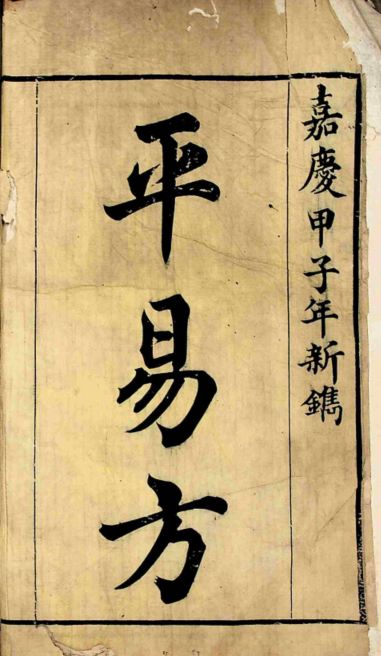 嘉慶甲子年新鐫
平易方